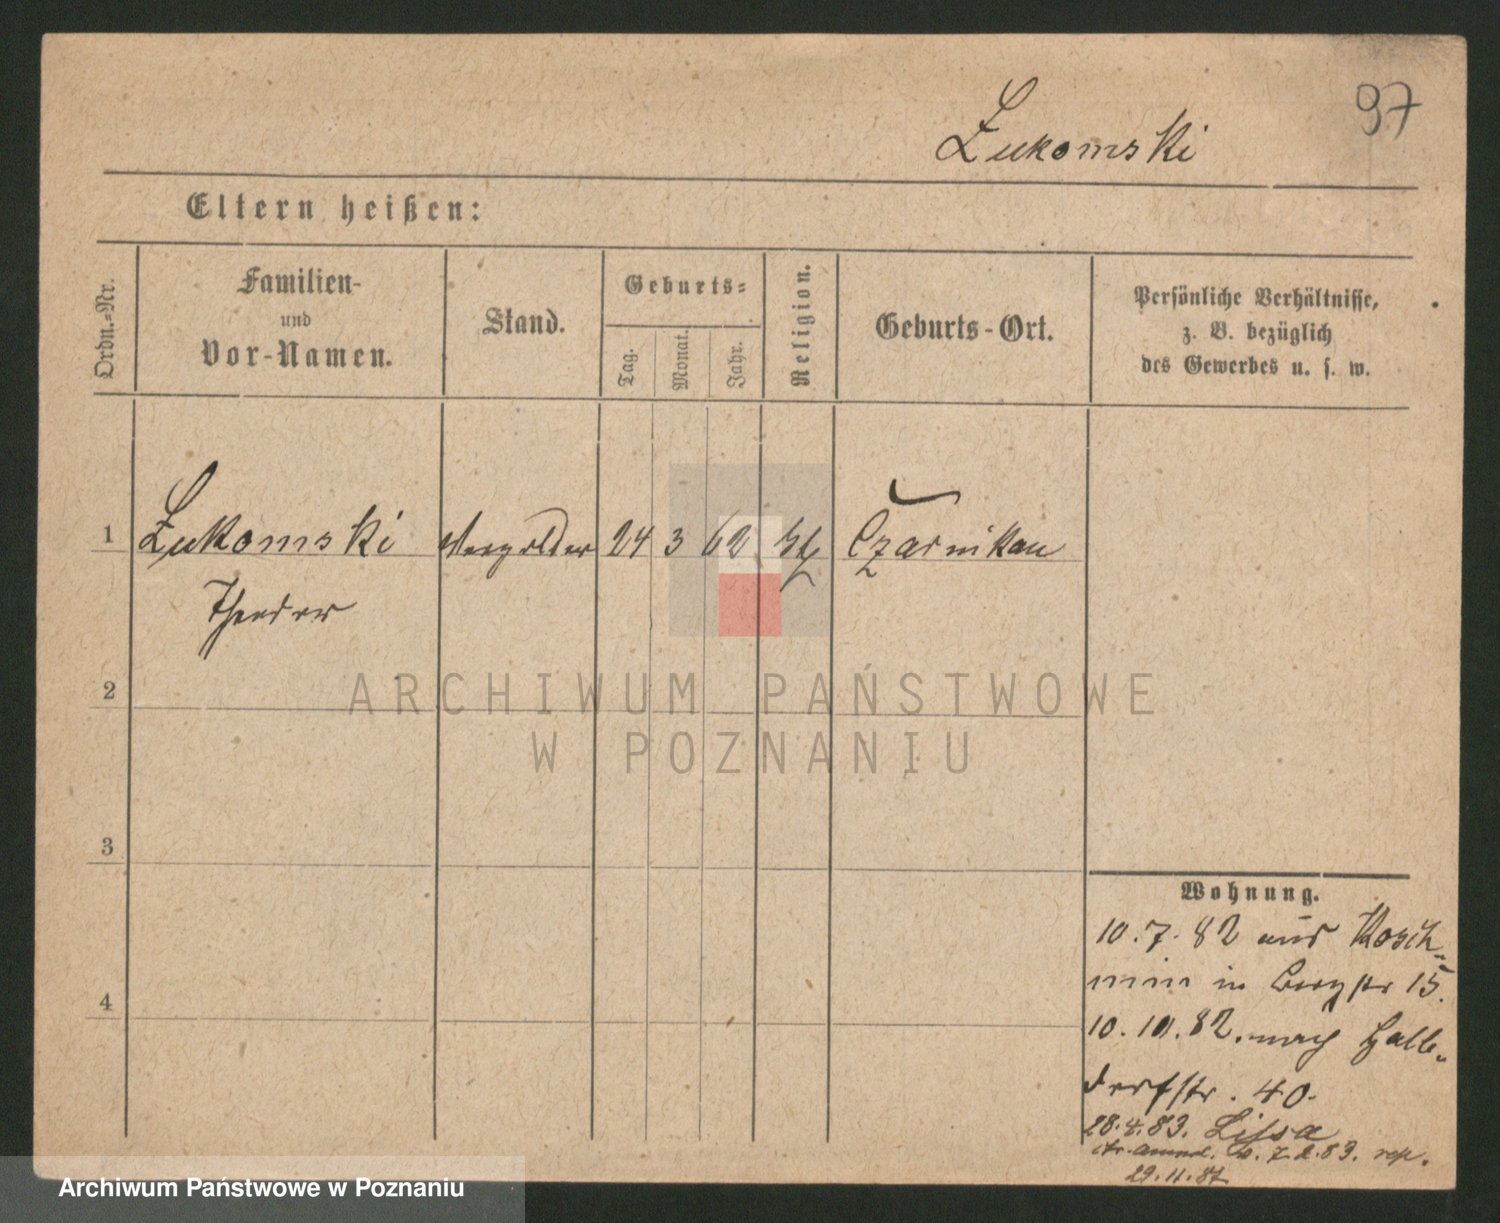 97
Łukomski
Eltern heißen:
Ordn.-Nr.
Familien-
und
Vor-Namen.
Stand.
Geburts-
Tag.
Monat.
Jahr.
Religion.
Geburts-Ort.
Persönliche Verhältnisse,
z. B. bezüglich
des Gewerbes u. s. w.
1 Łukomski 24 3 62 Czarnikau
Theodor
2
3
4
Wohnung.
10.7.82 aus Kosch-
min in Bergstr 15.
10.10.82. nach Halb-
dorfstr. 40.
28.4.83. Lissa
7.2.83. rep.
29.11.87
ARCHIWUM PAŃSTWOWE
W POZNANIU
Archiwum Państwowe w Poznaniu